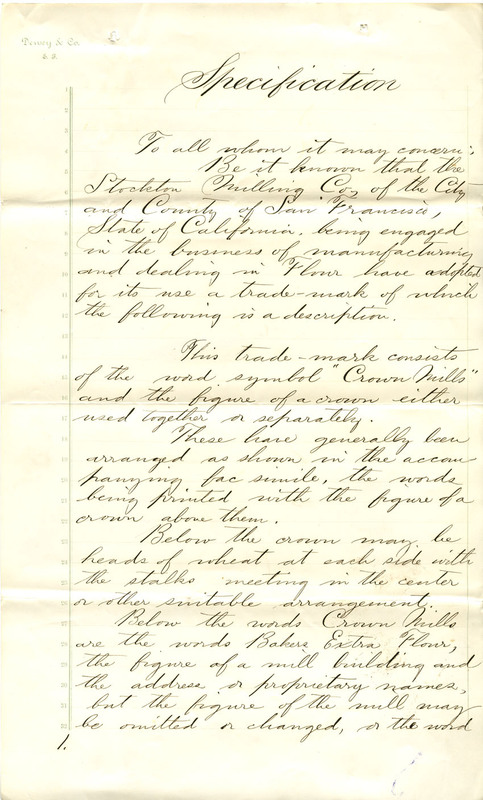 Dewey & Co.
S. F.
Specification
To all whom it may concern:
Be it known that the
Stockton Milling Co, of the City
and County of San Francisco,
State of California, being engaged
in the business of manufacturing
and dealing in Flour have adopted
for its use a trade-mark of which
the following is a description.
This trade-mark consists
of the word symbol "Crown Mills"
and the figure of a crown either
used together or separately.
These have generally been
arranged as shown in the accom
panying fac simile, the words
being printed with the figure of a
crown above them.
Below the crown may be
heads of wheat at each side with
the stalks meeting in the center
or other suitable arrangement.
Below the words Crown Mills
are the words Bakers Extra Flour,
the figure of a mill building and
the address or proprietary names,
but the figure of the mill may
be omitted or changed, or the word
1.